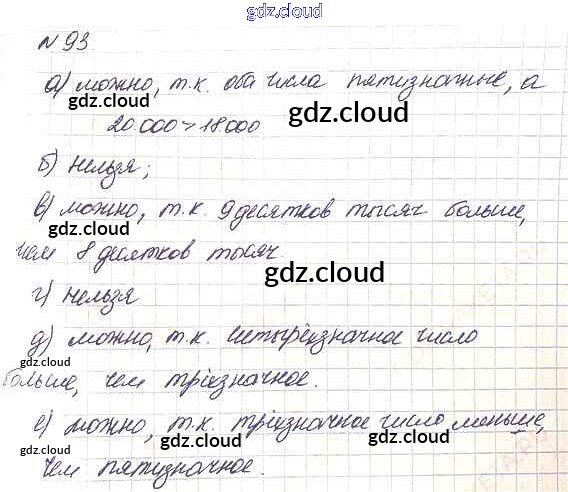 gdz.cloud
№ 93
а) можно, т.к. оба числа пятизначные, а
gdz.cloud
gdz.cloud
20.000 > 18.000
б) нельзя;
gdz.cloud
gdz.cloud
в) можно, т.к. 9 десятков тысяч больше,
чем 8 десятков тысяч.
gdz.cloud
gdz.cloud
г) нельзя
д) можно, т.к. четырёхзначное число
gdz.cloud
gdz.cloud
больше, чем трёхзначное.
gdz.cloud
е) можно, т.к. трёхзначное число меньше,
gdz.cloud
gdz.cloud
чем пятизначное.
gdz.cloud